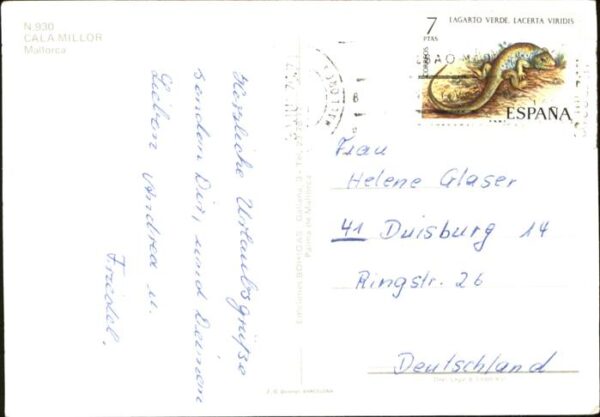 N. 930
CALA MILLOR
Mallorca
Herzliche Urlaubsgrüße
senden Dir, und Deinen
Lieben Andrea u.
Friedel.
Palma de Mallorca
BARCELONA
7
PTAS
LAGARTO VERDE. LACERTA VIRIDIS
CORREOS
ESPAÑA
Frau
Helene Glaser
41 Duisburg 14
Ringstr. 26
Deutschland